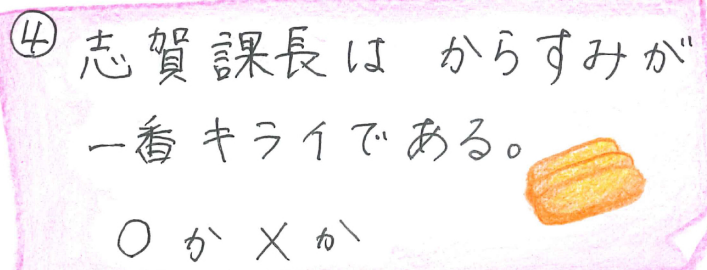 ④ 志賀課長は からすみが
一番キライである。
○か×か